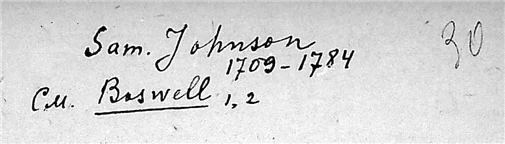 Sam. Johnson 30
1709-1784
См. Boswell 1, 2